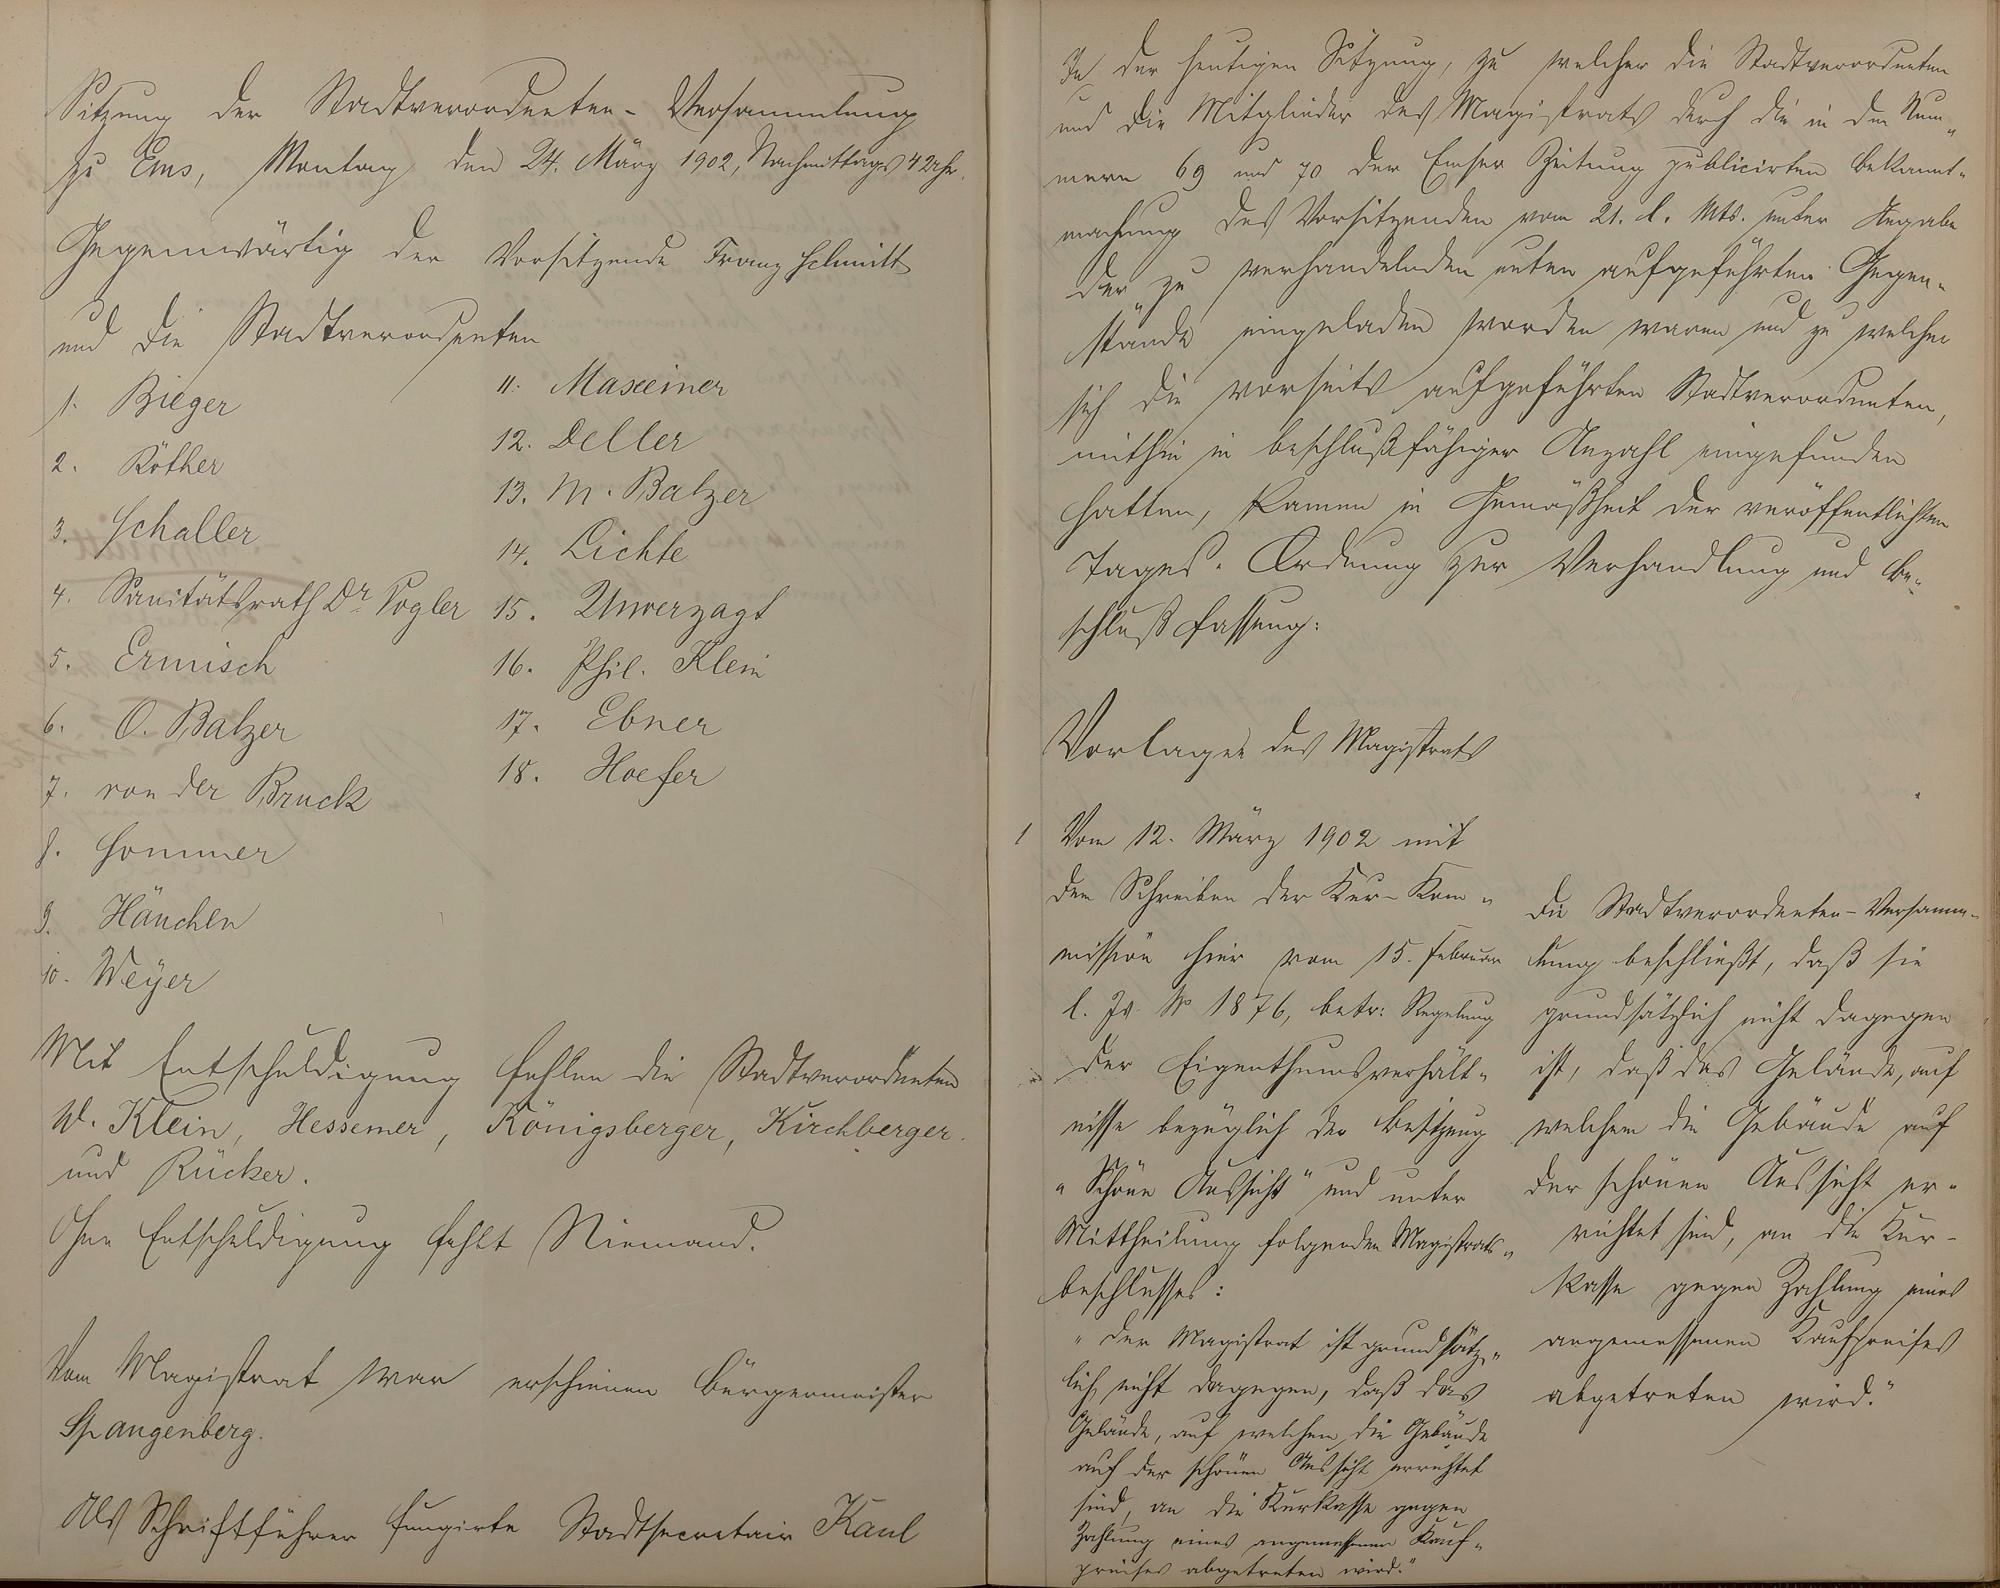 Sitzung der Stadtverordneten-Versammlung
zu Ems, Montag den 24. März 1902, Nachmittags 4 Uhr.
Gegenwärtig der Vorsitzende Franz Schmitt
und die Stadtverordneten
1. Bieger
2. Röther
3. Schaller
4. Sanitätsrath Dr. Vogler
5. Ermisch
6. O. Balzer
7. von der Bruck
8. Sommer
9. Hänchen
10. Weÿer
11. Maxeiner
12. Deller
13. M. Balzer
14. Lichte
15. Unverzagt
16. Phil. Klein
17. Ebner
18. Hoefer
Mit Entschuldigung fehlen die Stadtverordneten
W. Klein, Hessemer, Königsberger, Kirchberger
und Rücker.
Ohne Entschuldigung fehlt Niemand.
Vom Magistrat war erschienen Bürgermeister
Spangenberg.
Als Schriftführer fungirte Stadtsecretair Kaul
In der heutigen Sitzung, zu welcher die Stadtverordneten
und die Mitglieder des Magistrats durch die in den Num-
mern 69 und 70 der Emser Zeitung publicirten Bekannt-
machung des Vorsitzenden vom 21. l. Mts. unter Angabe
der zu verhandelnden unten aufgeführten Gegen-
stände eingeladen worden waren und zu welcher
sich die vorseits aufgeführten Stadtverordneten,
mithin in beschlußfähiger Anzahl eingefunden
hatten, kamen in Gemäßheit der veröffentlichten
Tages-Ordnung zur Verhandlung und Be-
schlußfassung:
Vorlagen des Magistrats
1 Vom 12. März 1902 mit
dem Schreiben der Kur-Kom-
mission hier vom 15. Februar
l. Js. No 1876, betr: Regelung
der Eigenthumsverhält-
nisse bezüglich der Besitzung
"Schöne Aussicht" und unter
Mittheilung folgenden Magistrats-
beschlusses:
"Der Magistrat ist grundsätz-
lich nicht dagegen, daß das
Gelände, auf welchem die Gebäude
auf der schönen Aussicht errichtet
sind, an die Kurkasse gegen
Zahlung eines angemessenen Kauf-
preises abgetreten wird."
Die Stadtverordneten-Versamm-
lung beschließt, daß sie
grundsätzlich nicht dagegen
ist, daß das Gelände, auf
welchem die Gebäude auf
der schönen Aussicht er-
richtet sind, an die Kur-
kasse gegen Zahlung eines
angemessenen Kaufpreises
abgetreten wird."